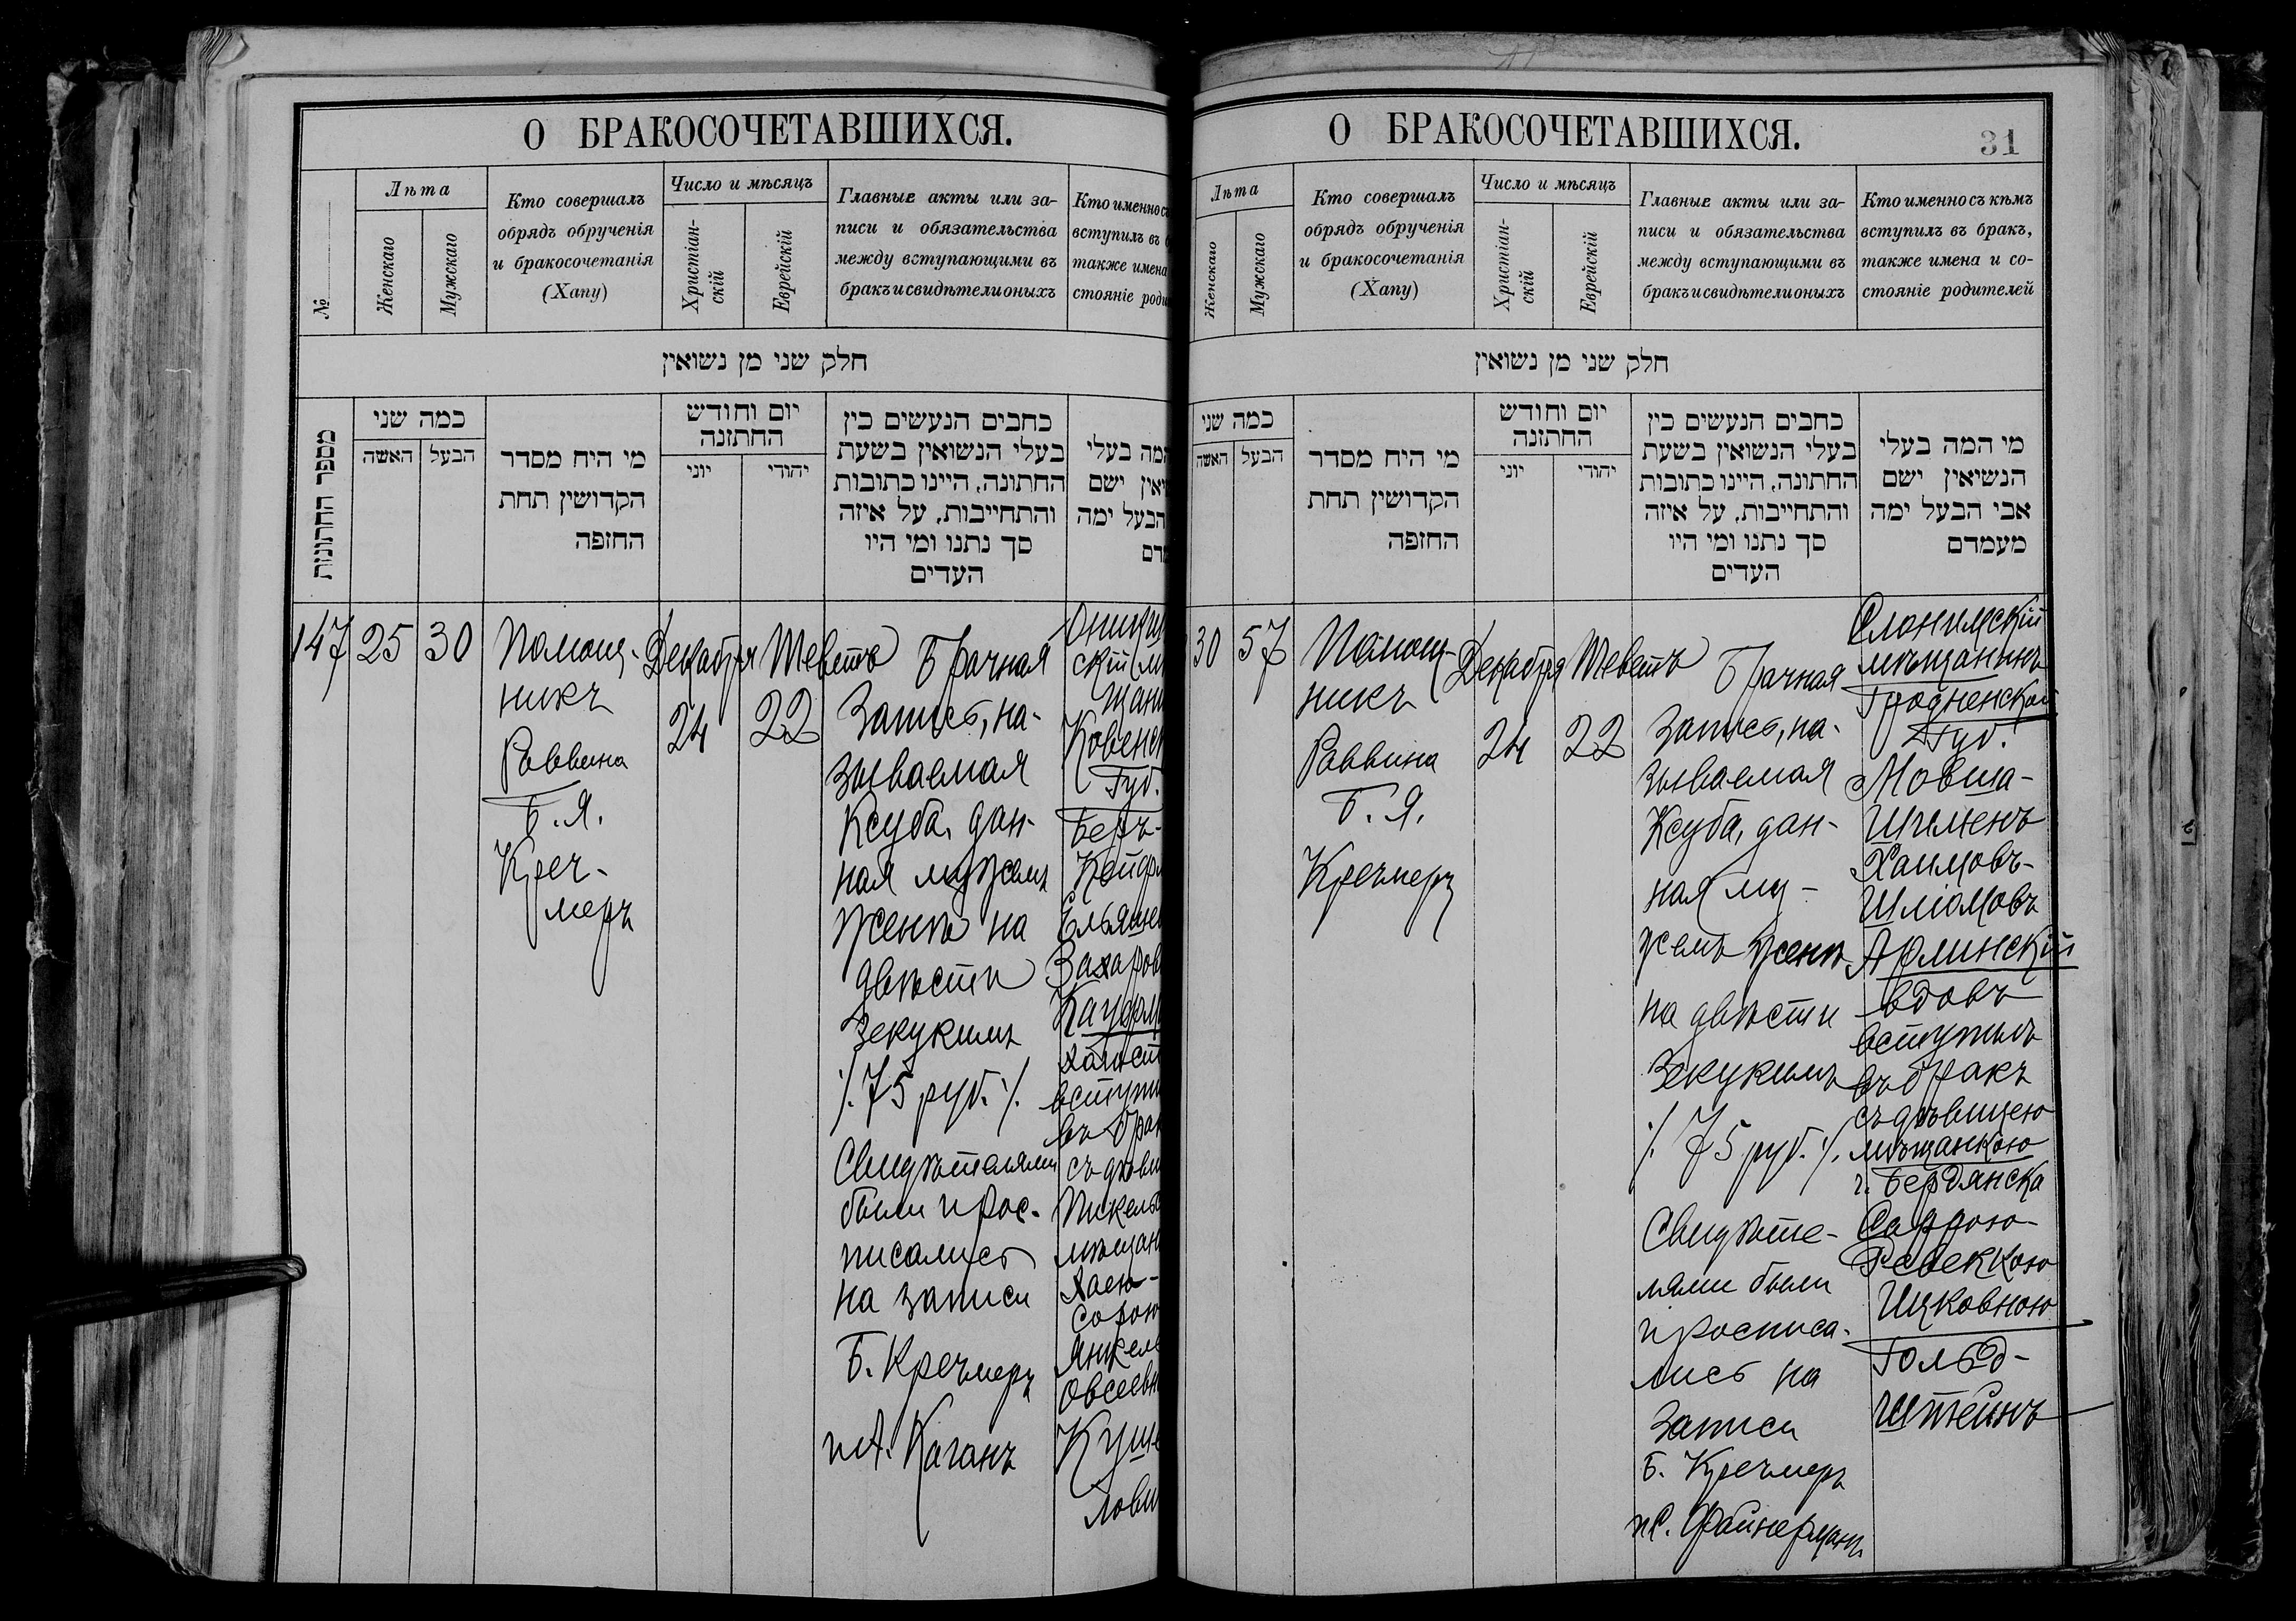 О БРАКОСОЧЕТАВШИХСЯ.
№
Лѣта
Женскаго
Мужскаго
Кто совершалъ
обрядъ обрученія
и бракосочетанія
(Хапу)
Число и мѣсяцъ
Христіан-
скій
Еврейскій
Главные акты или за-
писи и обязательства
между вступающими въ
бракъ и свидѣтели оныхъ
Кто именно съ
вступилъ въ б
также имена
стояніе роди
חלק שני מן נשואין
מספר החתונות
כמה שני
האשה
הבעל
מי היח מסדר
הקדושין תחת
החזפה
יום וחודש
החתזנה
יוני
יהודי
כחבים הנעשים כין
בעלי הנשואין בשעת
החתונה, היינו כתובות
והתחייבות, על איזה
סך נתנו ומי היו
העדים
המה בעלי
יאין ישם
הבעל ימה
147
25
30
Помощ-
никъ
Раввина
Б. Я.
Креч-
меръ
Декабря
24
Теветъ
22
Брачная
запись, на-
зываемая
Ксуба, дан-
ная мужемъ
женѣ на
двѣсти
Зекукимъ
/. 75 руб. /.
Свидѣтелями
были и рос-
писались
на записи
Б. Кречмеръ
и А. Каганъ
скій мѣ
щани
Ковенск
Губ.
Беръ-
Ельяше
Захаров
Кауфм
холост
вступи
въ брак
съ дѣви
мѣщан
Хаею-
Сорою
Янкел
Овсеевн
Куше
лови
О БРАКОСОЧЕТАВШИХСЯ.
31
Лѣта
Женскаго
Мужскаго
Кто совершалъ
обрядъ обрученія
и бракосочетанія
(Хапу)
Число и мѣсяцъ
Христіан-
скій
Еврейскій
Главные акты или за-
писи и обязательства
между вступающими въ
бракъ и свидѣтели оныхъ
Кто именно съ кѣмъ
вступилъ въ бракъ,
также имена и со-
стояніе родителей
חלק שני מן נשואין
כמה שני
האשה
הבעל
מי היח מסדר
הקדושין תחת
החזפה
יום וחודש
החתזנה
יוני
יהודי
כחבים הנעשים כין
בעלי הנשואין בשעת
החתונה, היינו כתובות
והתחייבות, על איזה
סך נתנו ומי היו
העדים
מי המה בעלי
הנשיאין ישם
אבי הבעל ימה
מעמדם
30
57
Помощ-
никъ
Раввина
Б. Я.
Кречмеръ
Декабря
24
Теветъ
22
Брачная
запись, на-
зываемая
Ксуба, дан-
ная му-
жемъ женѣ
на двѣсти
Зекукимъ
/. 75 руб. /.
Свидѣте-
лями были
и росписа-
лись на
записи
Б. Кречмеръ
и С. Файнерманъ
Слонимскій
мѣщанинъ
Гродненской
Губ.
Мовша-
Шлиенъ
Хаимовъ-
Шліомовъ
Арлинскій
вдовъ
вступилъ
въ бракъ
съ дѣвицею
мѣщанкою
г. Бердянска
Саррою-
Ревеккою
Ицковною
Гольд-
штейнъ